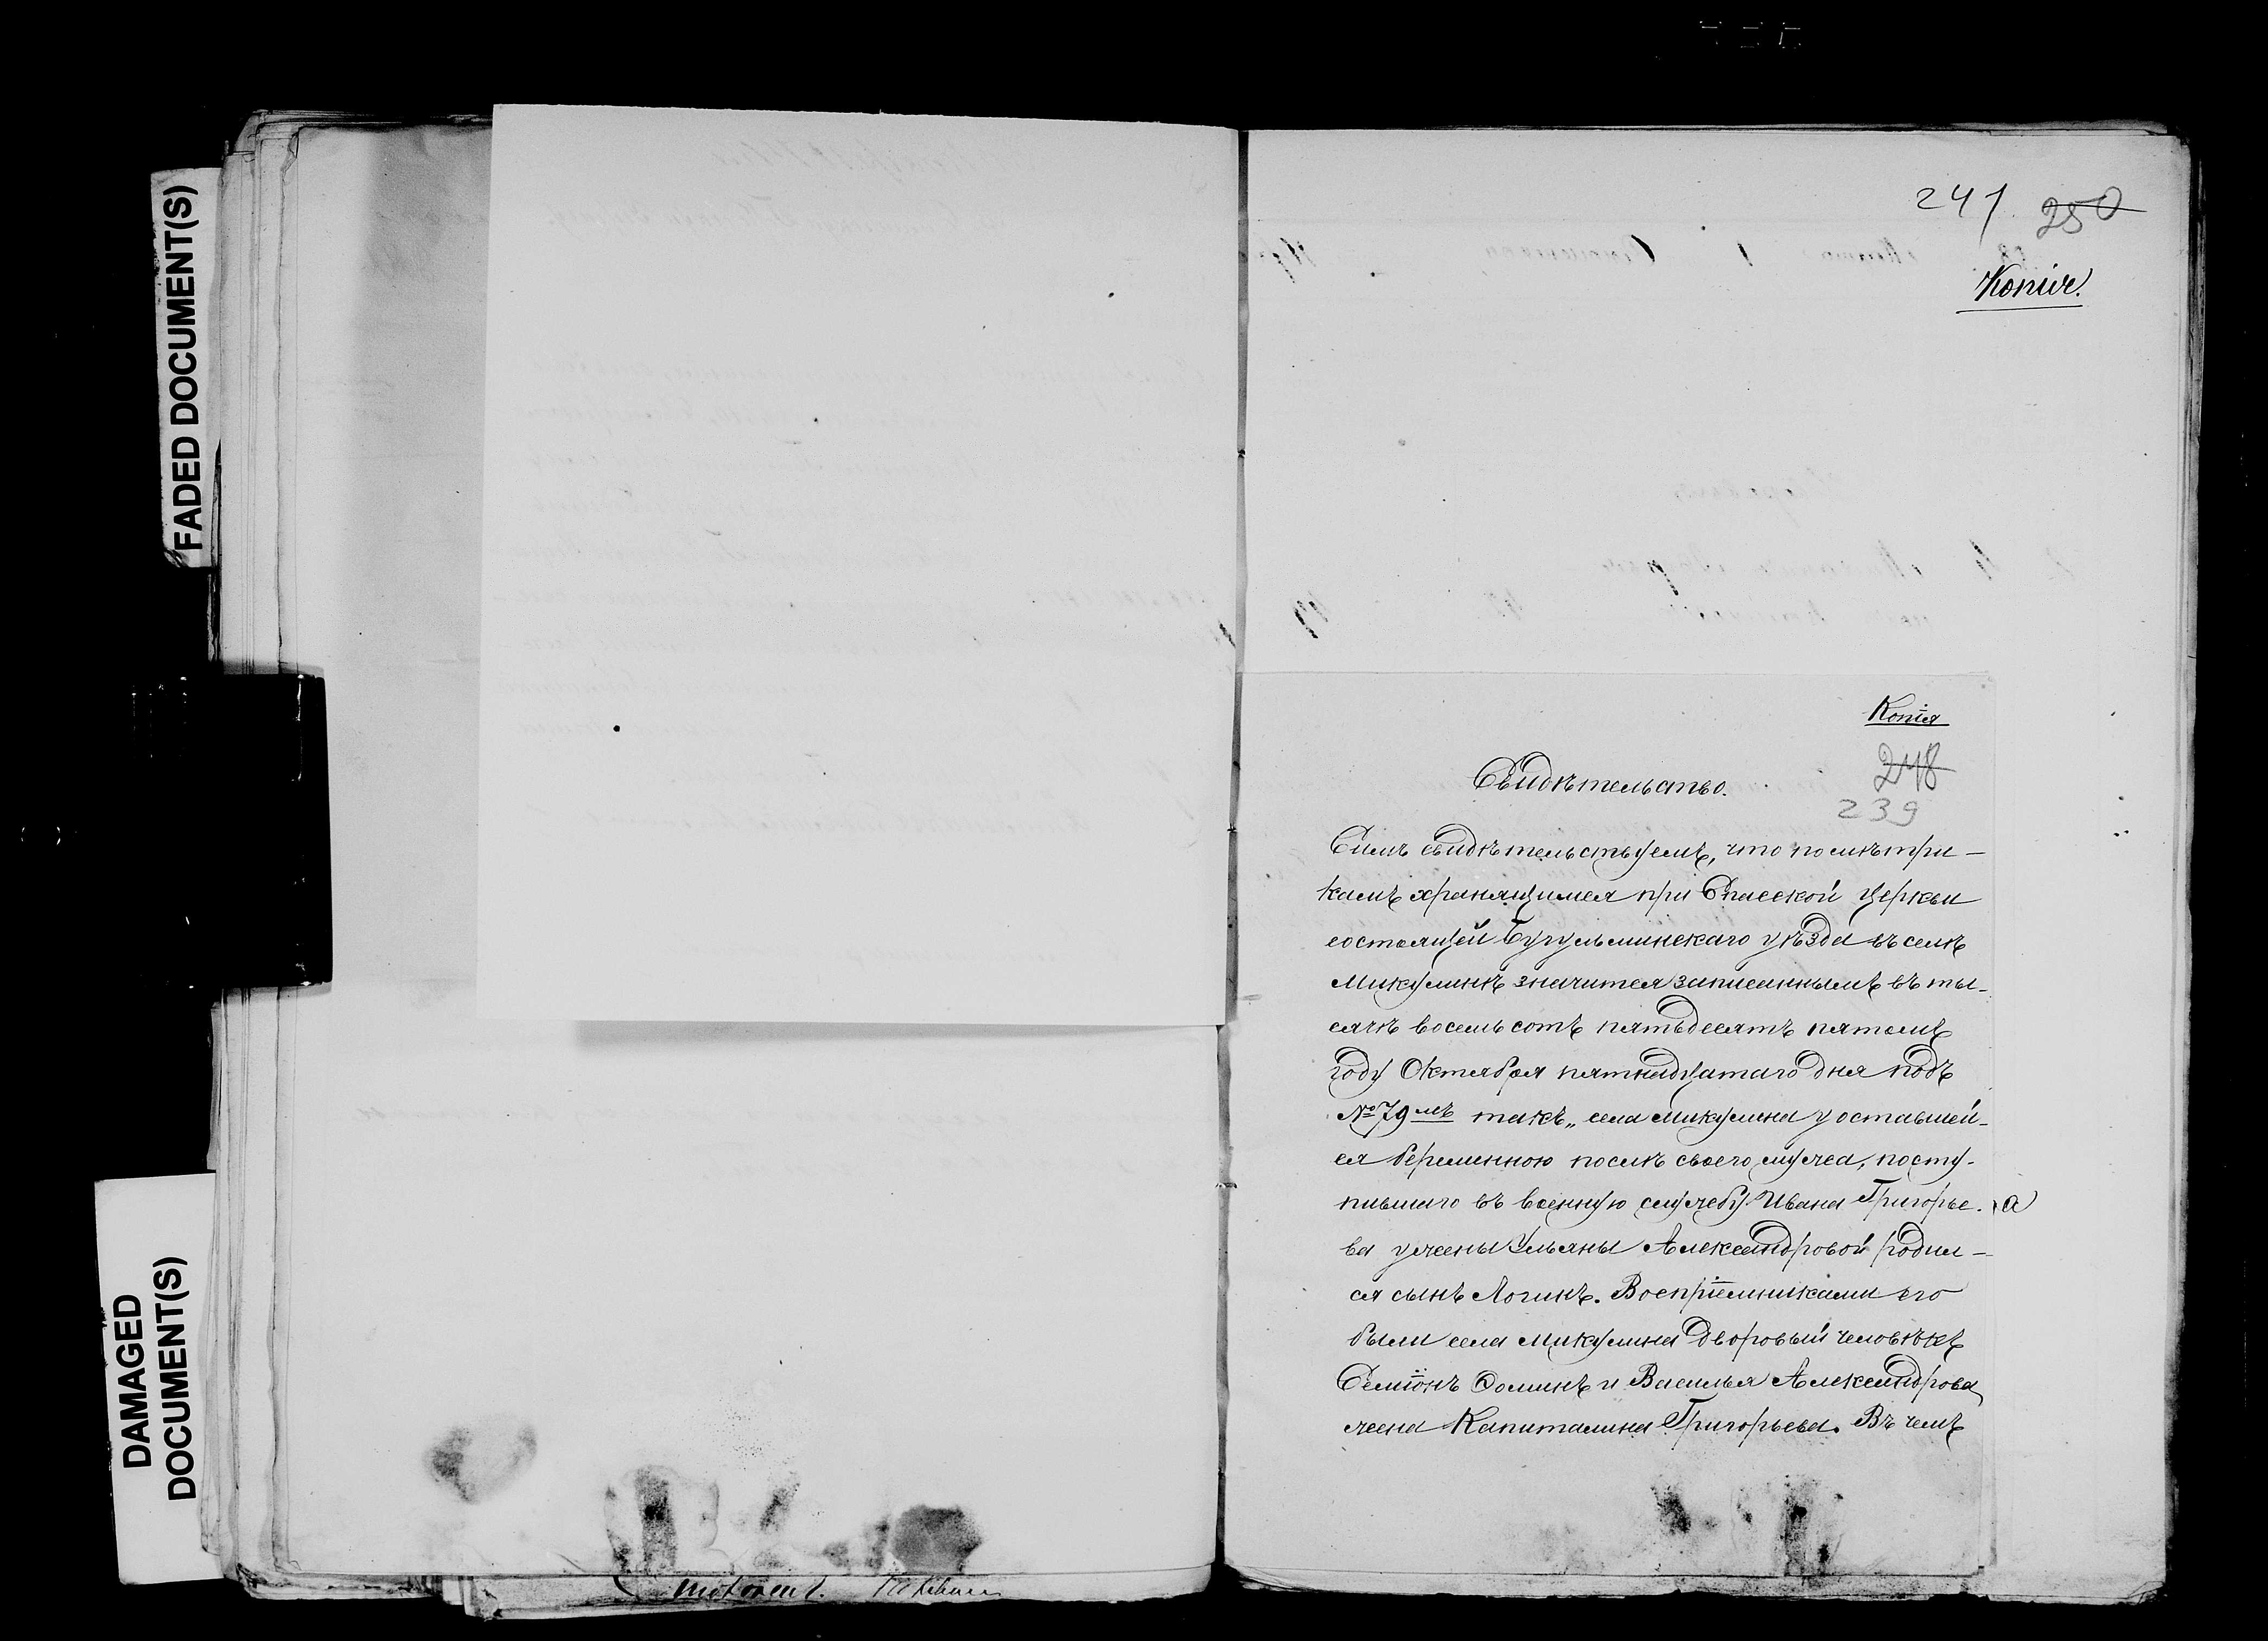 FADED DOCUMENT(S)
DAMAGED
DOCUMENT(S)
241 250
Копія.
Копія
248
239
Свидѣтельство.
Симъ свидѣтельствуемъ, что по мѣтри-
камъ хранящимся при Спасской Церкви
состоящей Бугульминскаго уѣзда въ селѣ
Микулинѣ значится записаннымъ въ ты-
сячѣ восемьсотъ пятьдесятъ пятомъ
году Октября пятнадцатаго дня подъ
№ 79мъ такъ „ села Микулина у оставшей-
ся беременною послѣ своего мужа, посту-
пившаго въ военную службу Ивана Григорье-
ва у жены Ульяны Александровой родил-
ся сынъ Логинъ. Воспріемниками его
были села Микулина дворовый человѣкъ
Семіонъ Ѳоминъ и Василья Александрова
жена Капиталина Григорьева. Въ чемъ
а